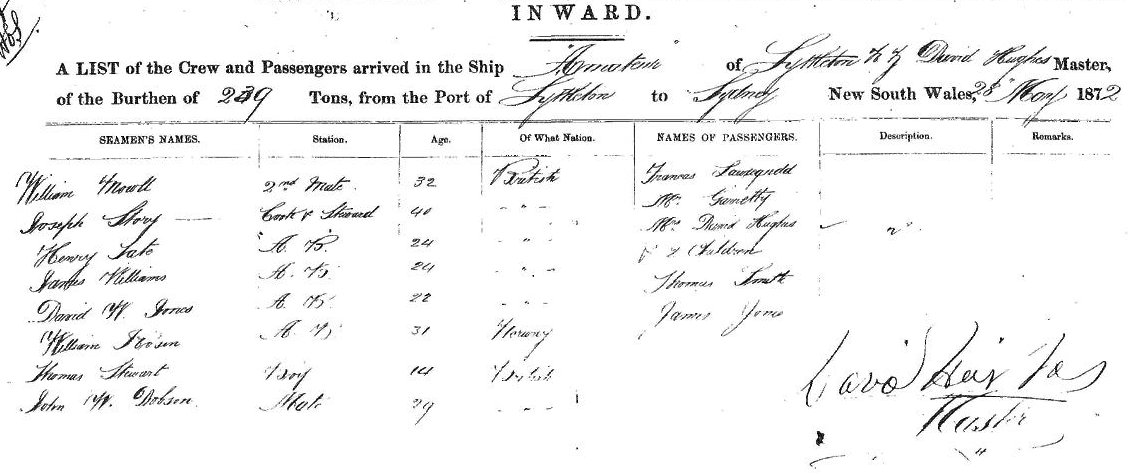 INWARD.
A LIST of the Crew and Passengers arrived in the Ship "Amateur" of Lyttleton N Z David Hughes Master,
of the Burthen of 239 Tons, from the Port of Lyttleton to Sydney New South Wales, 28 May 1872
SEAMEN'S NAMES. Station. Age. Of What Nation. NAMES OF PASSENGERS. Description. Remarks.
William 2nd Mate 32 British Frances
Joseph Story Cook & Steward 40 " " Mr.
Henry Tate A. B. 24 " " Mrs David Hughes
James Williams A. B. 24 " " & 2 Children
David W. Jones A. B. 22 " " Thomas Smith
William A. B. 31 Norway James Jones
Thomas Stewart Boy 14 British
John W. Dobson Mate 29 " "
David
Master